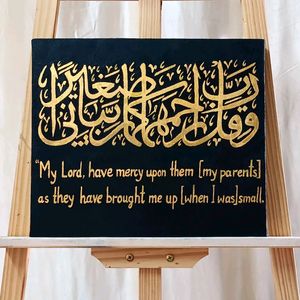 وقل رب ارحمهما كما ربياني صغيرا
“My Lord, have mercy upon them [my parents]
as they have brought me up [when I was] small.